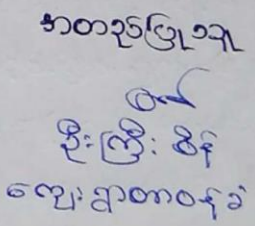 အတည်ပြုသူ
ဦးကြီးစိန်
ကျေးရွာတာဝန်ခံ